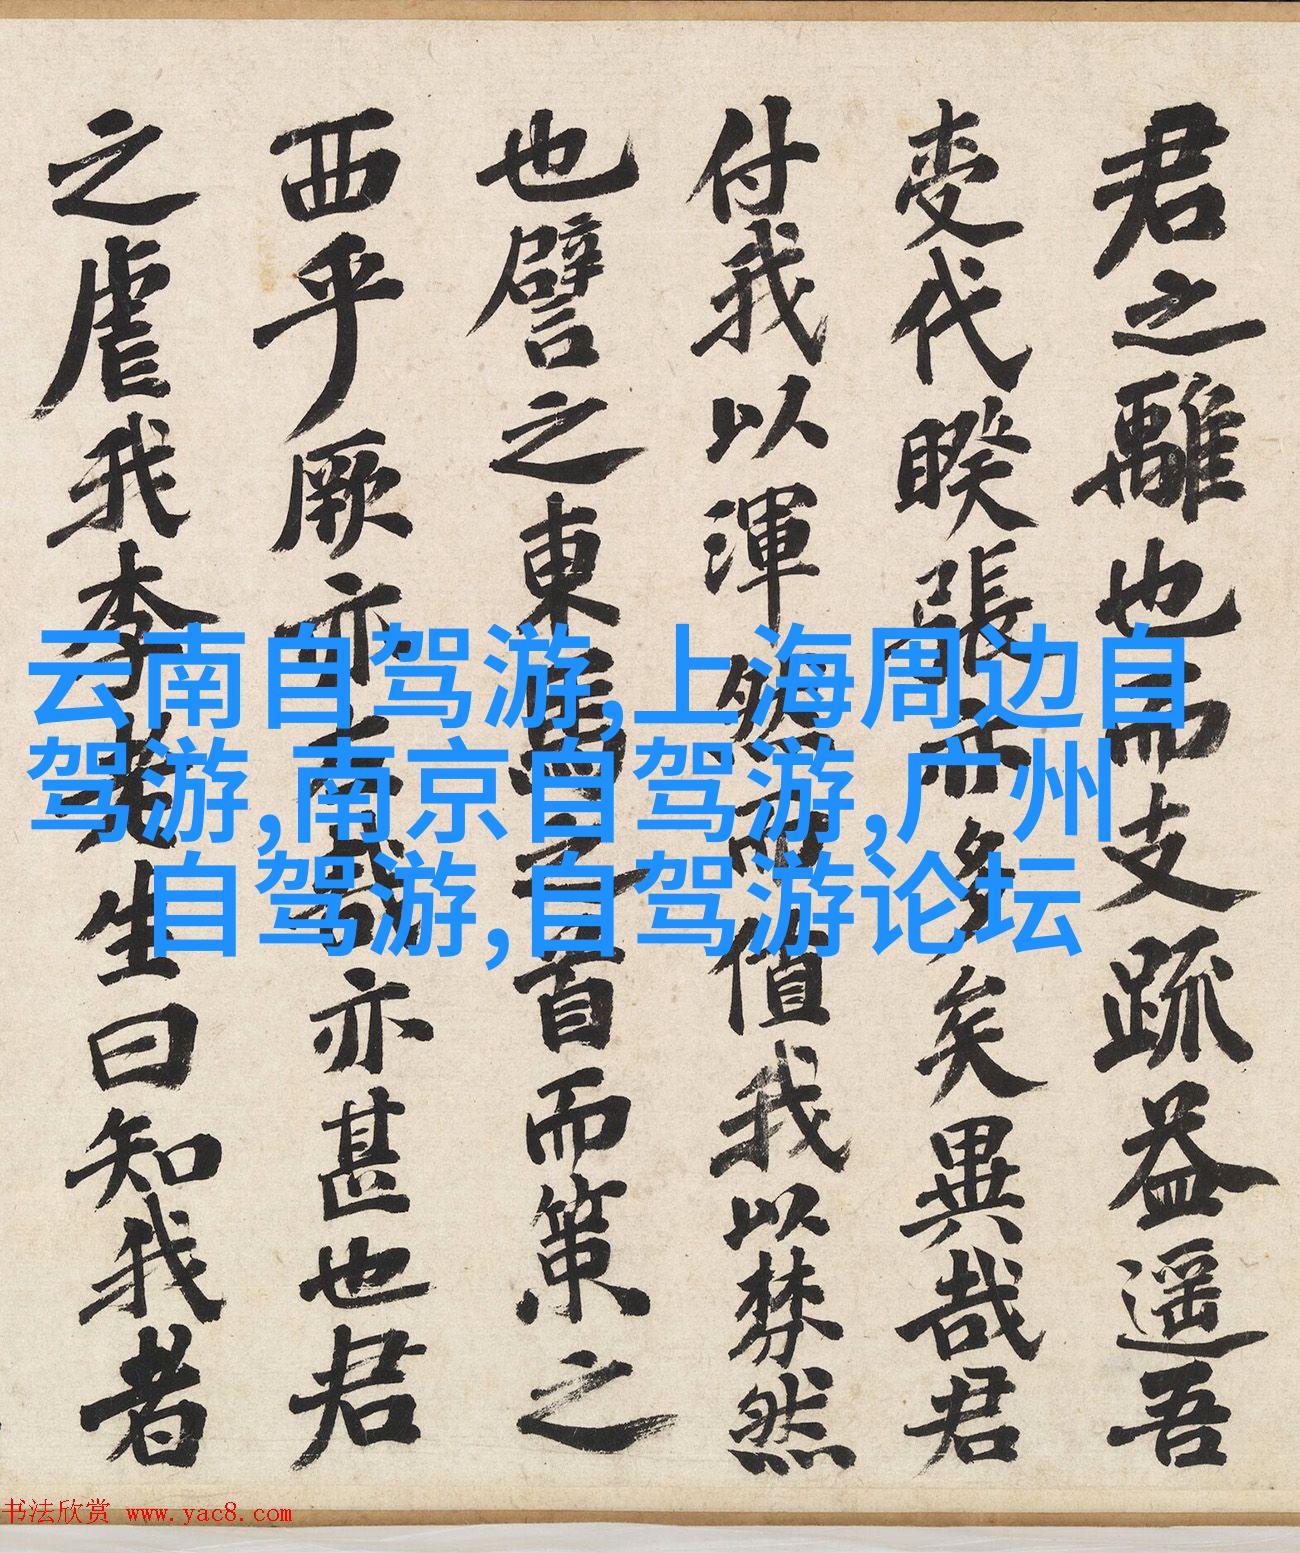 君之離也而支疏益遥吾
代睽張所多矣異哉君
付我以渾然而值我以棼然
也譬之東馬之首而策之
西乎厥亦哉亦甚也君
之虐我李生曰知我者
云南自驾游,上海周边自
驾游,南京自驾游,广州
自驾游,自驾游论坛
书法欣赏 www.yac8.com